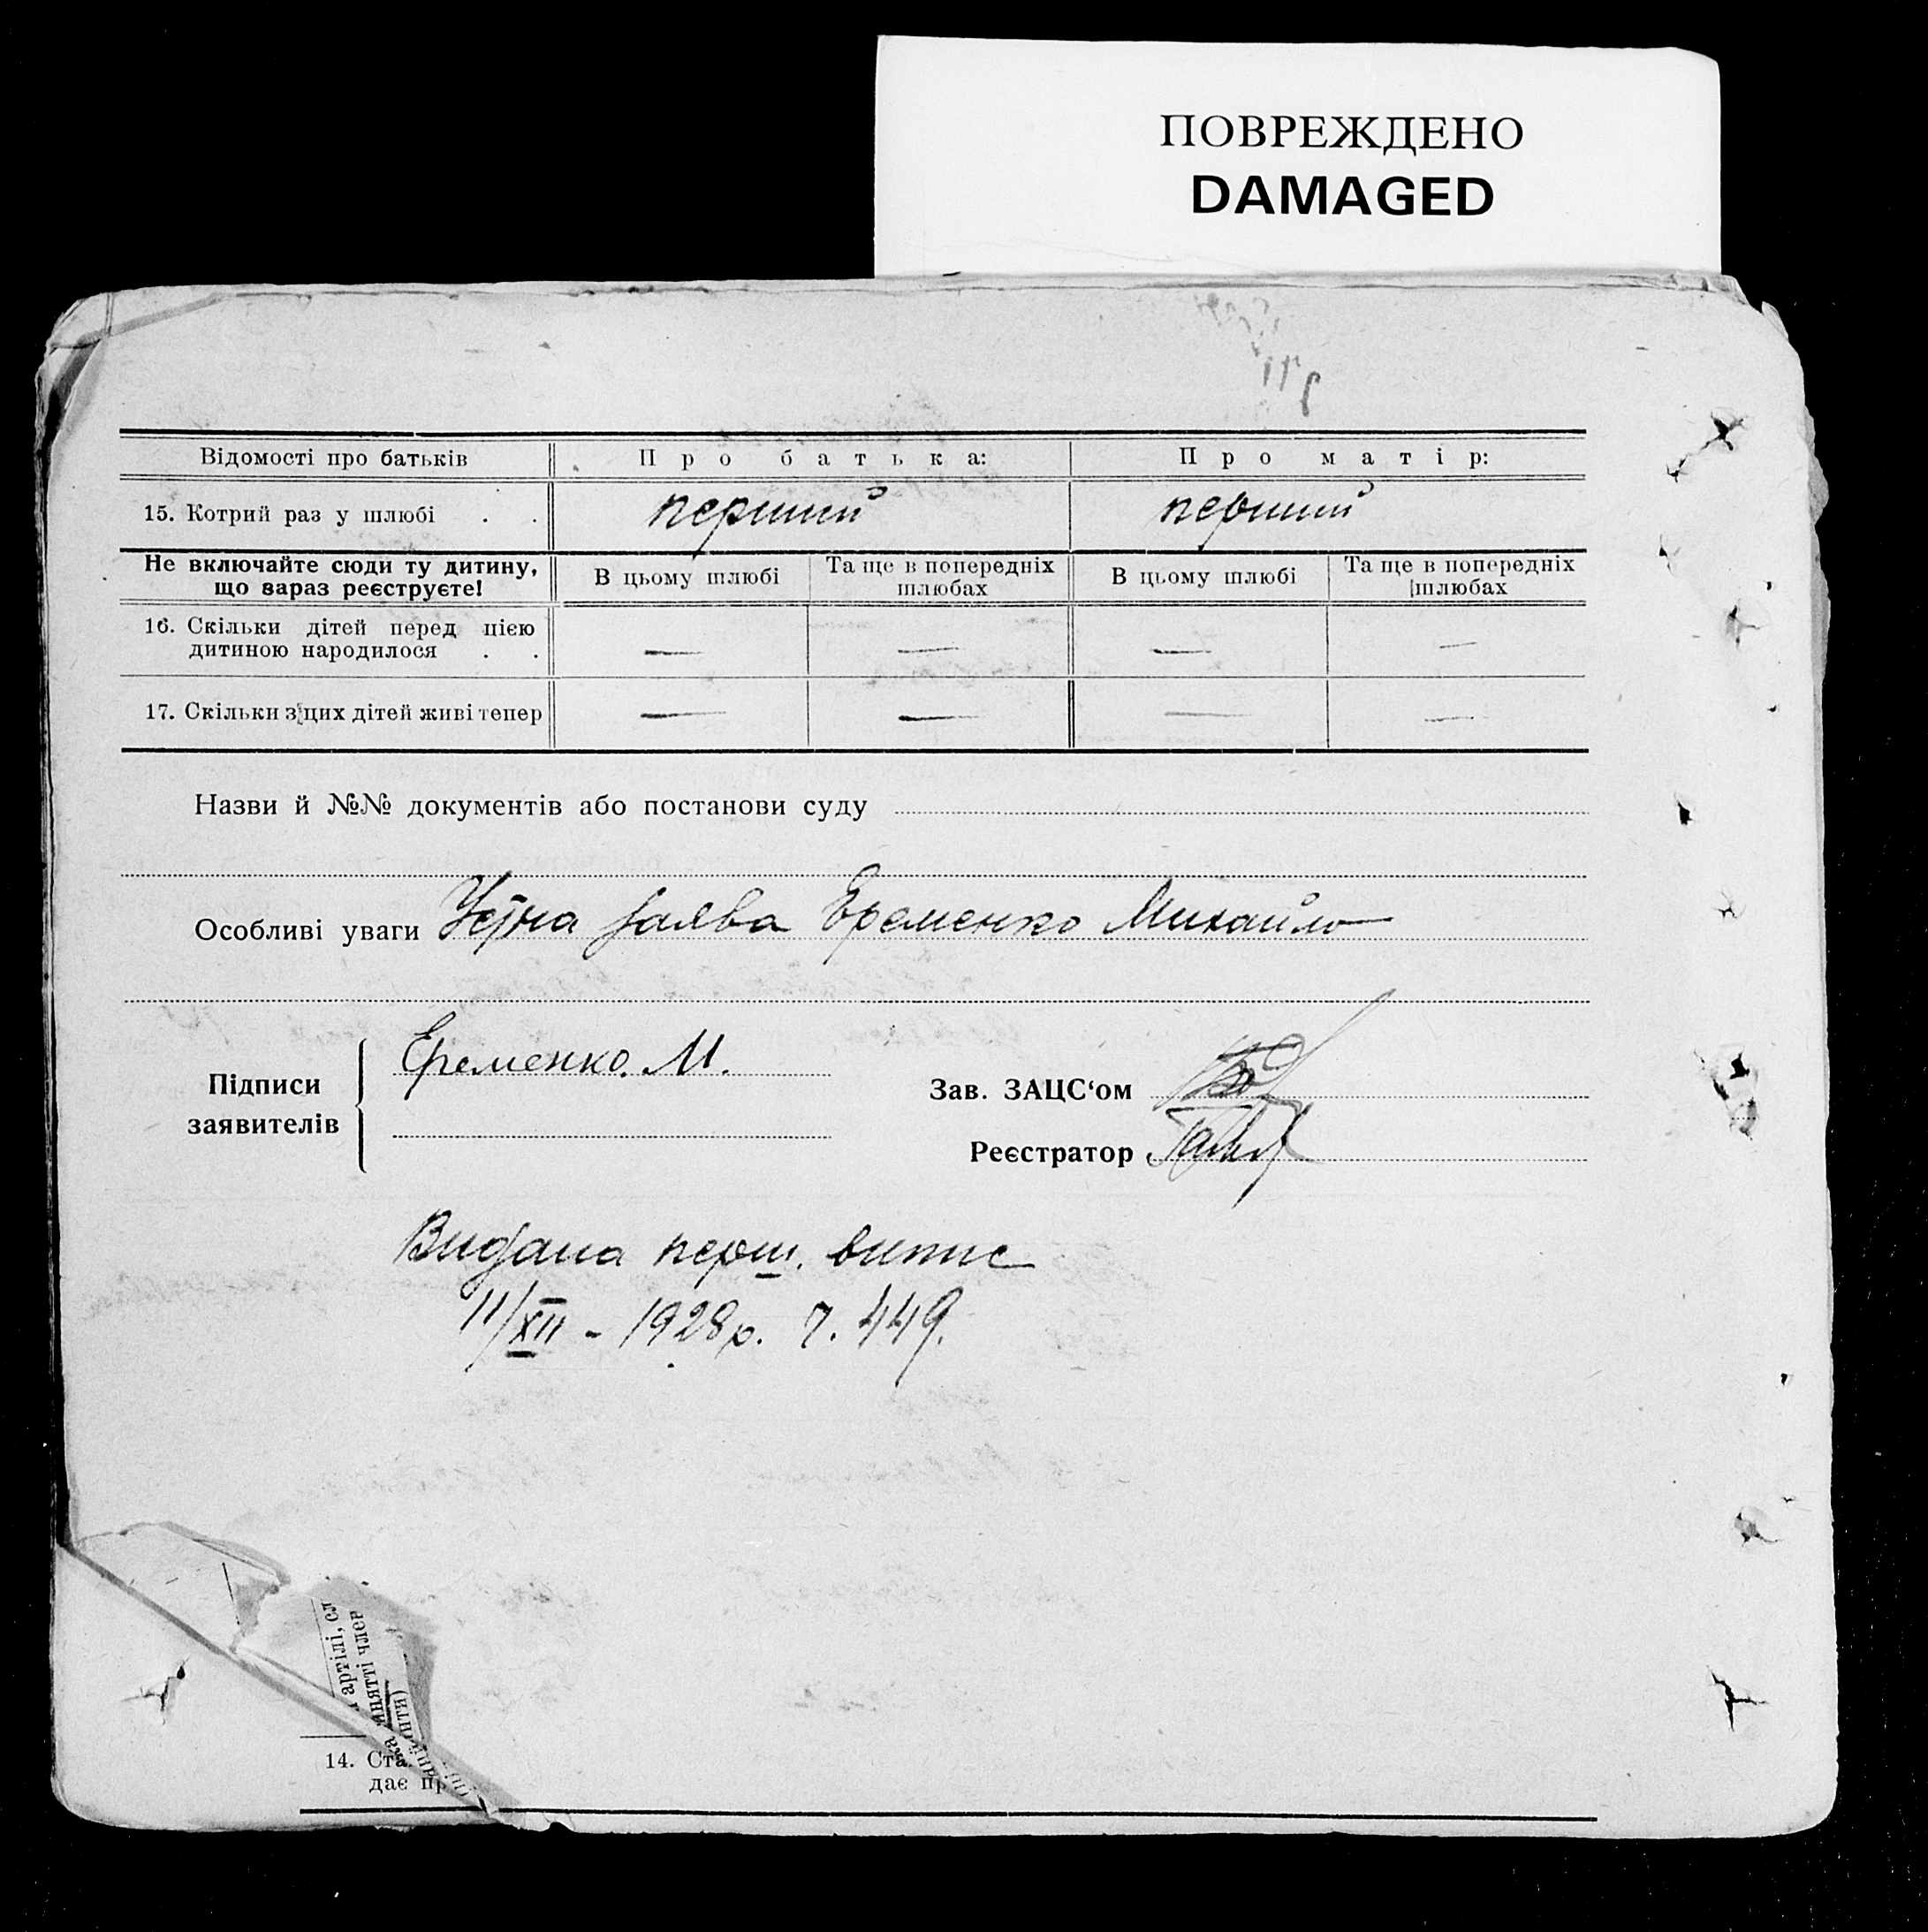 ПОВРЕЖДЕНО
DAMAGED
Відомості про батьків Про батька: Про матір:
15. Котрий раз у шлюбі . . перший перший
Не включайте сюди ту дитину, що зараз реєструєте! В цьому шлюбі Та ще в попередніх шлюбах В цьому шлюбі Та ще в попередніх шлюбах
16. Скільки дітей перед цією дитиною народилося . . — — — —
17. Скільки з цих дітей живі тепер — — — —
Назви й №№ документів або постанови суду
Особливі уваги Устна заява Єременко Михайло
Підписи заявителів Єременко. М.
Зав. ЗАЦС‘ом
Реєстратор
Видана перш. випис
11/XII - 1928 р. ч. 449.
артілі, сл
нятті член
14. Ста
дає пр